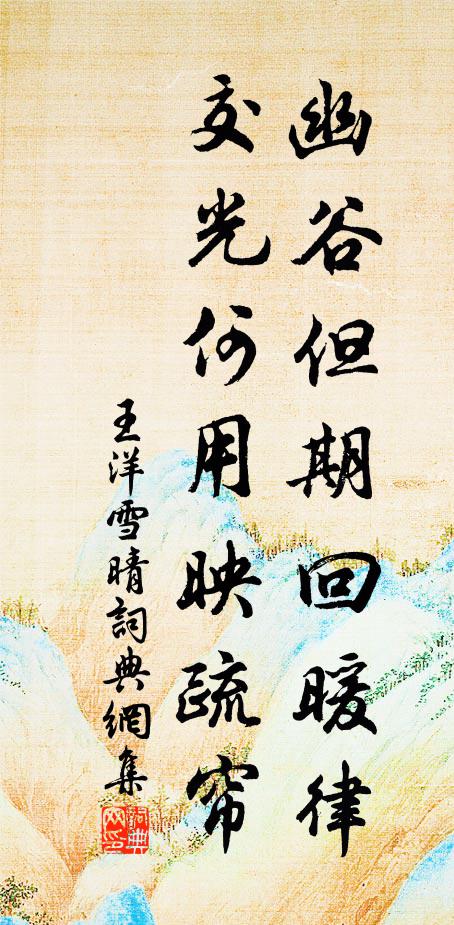 幽谷但期回暖律
交光何用映疏帘
王洋雪晴詞典網集